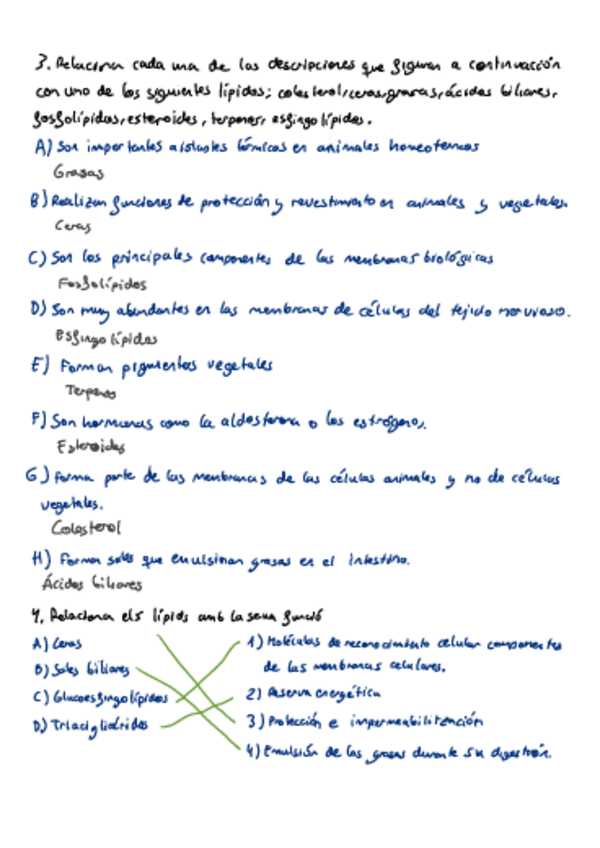 3. Relaciona cada una de las descripciones que figuran a continuación
con uno de los siguientes lípidos; colesterol, ceras, grasas, ácidos biliares,
fosfolípidos, esteroides, terpenos, esfingolípidos.
A) Son importantes aislantes térmicos en animales homeotermos
Grasas
B) Realizan funciones de protección y revestimiento en animales y vegetales.
Ceras
C) Son los principales componentes de las membranas biológicas
Fosfolípidos
D) Son muy abundantes en las membranas de células del tejido nervioso.
Esfingolípidos
E) Forman pigmentos vegetales
Terpenos
F) Son hormonas como la aldosterona o los estrógenos.
Esteroides
G) Forma parte de las membranas de las células animales y no de células
vegetales.
Colesterol
H) Forman sales que emulsionan grasas en el intestino.
Ácidos biliares
4. Relaciona els lípids amb la seua funció
A) Ceras
B) Sales biliares
C) Glucoesfingolípidos
D) Triacilglicéridos
1) Moléculas de reconocimiento celular componentes
de las membranas celulares.
2) Reserva energética
3) Protección e impermeabilización
4) Emulsión de las grasas durante su digestión.